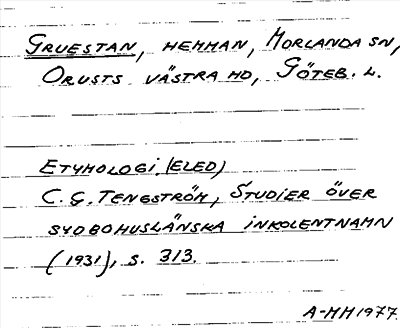 GRUESTAN, HEMMAN, MORLANDA SN,
ORUSTS VÄSTRA HD, GÖTEB. L.
ETYMOLOGI. (ELED)
C. G. TENGSTRÖM, STUDIER ÖVER
SYDBOHUSLÄNSKA INKOLENTNAMN
(1931), S. 313.
A-MH1977